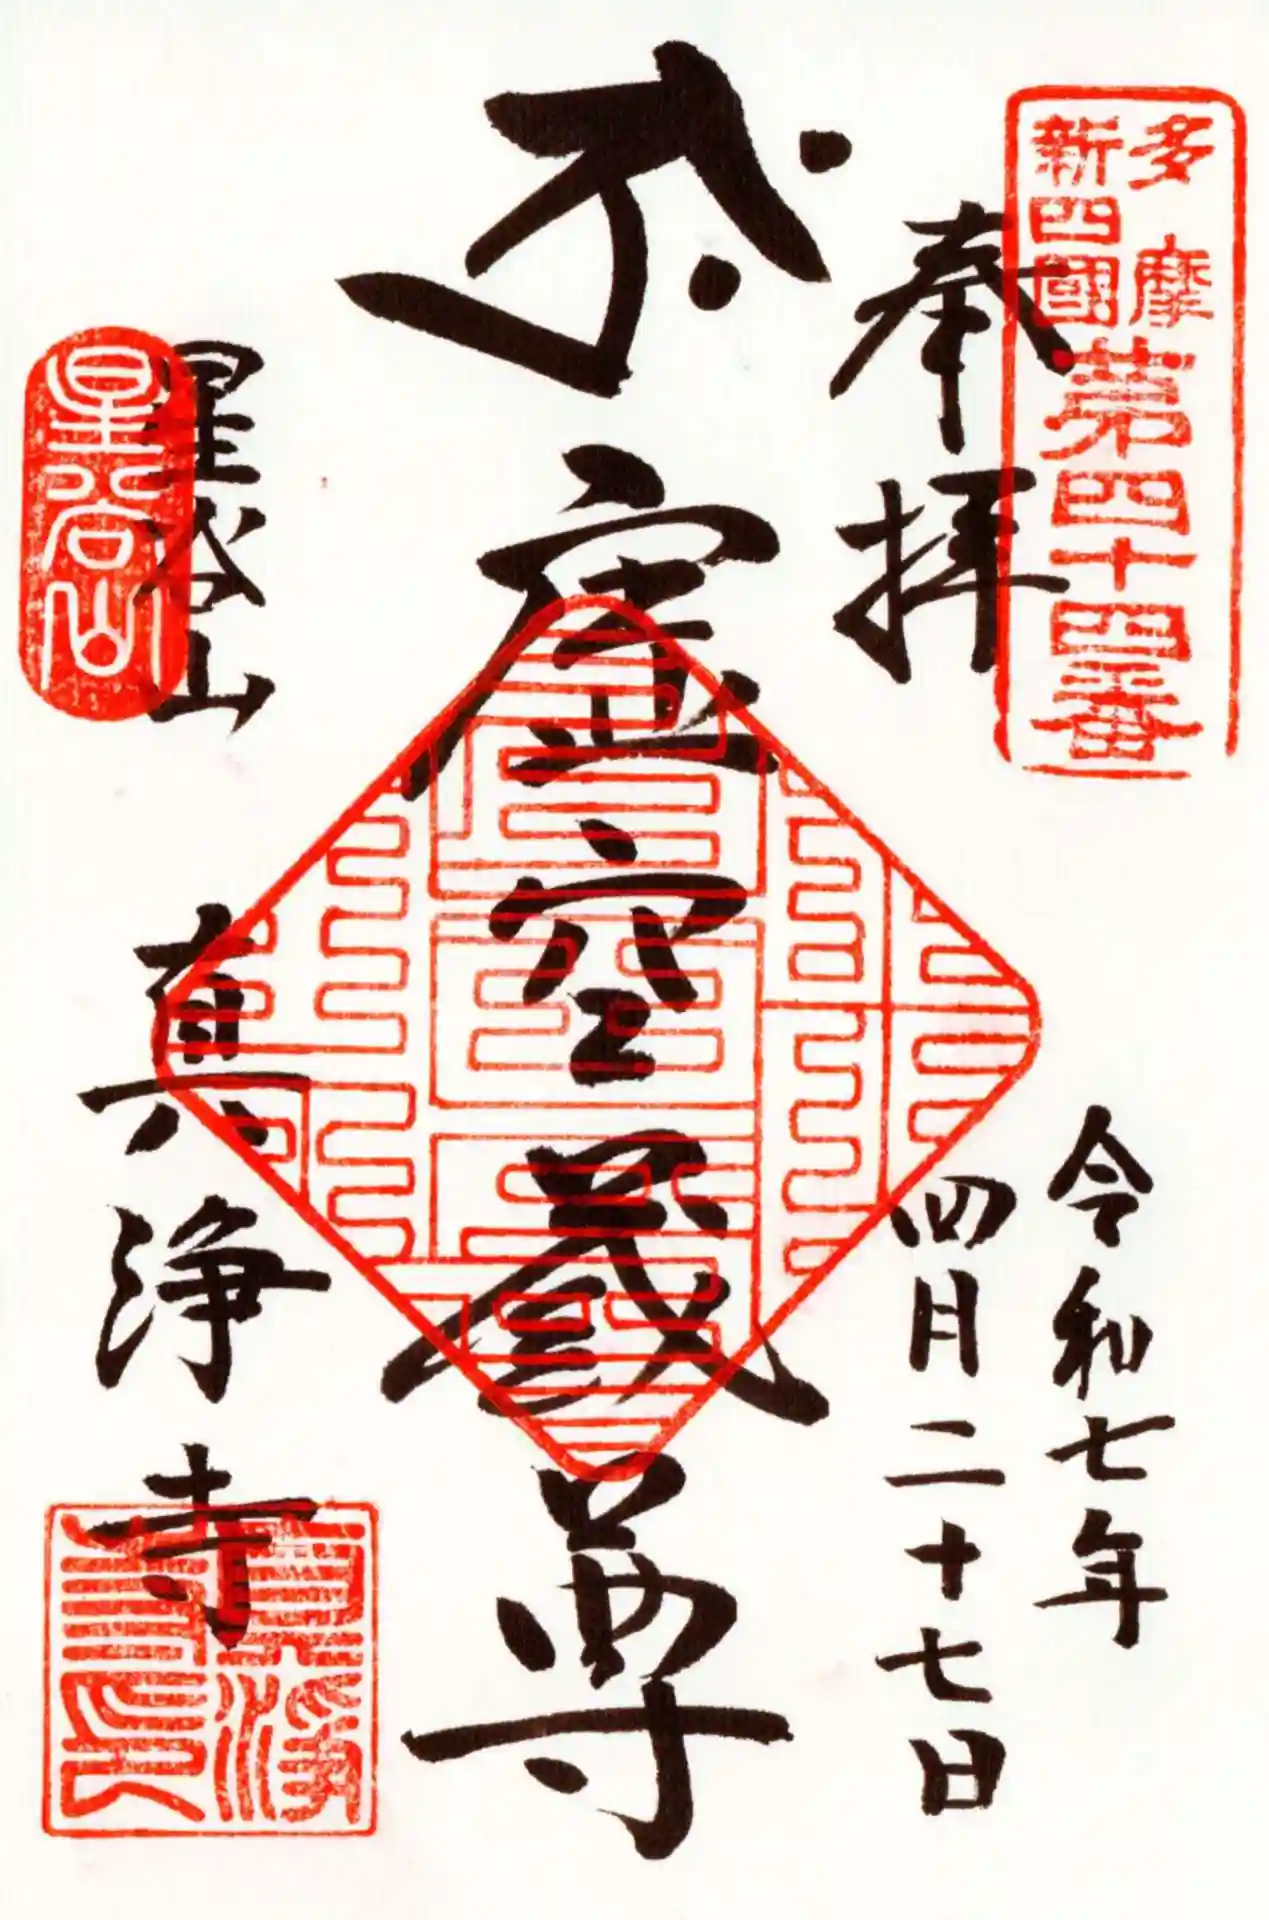 多摩
新四國
第四十四番
奉拝
令和七年
四月二十七日
虚空蔵尊
星谷山
真浄寺
星谷山
真浄
寺印